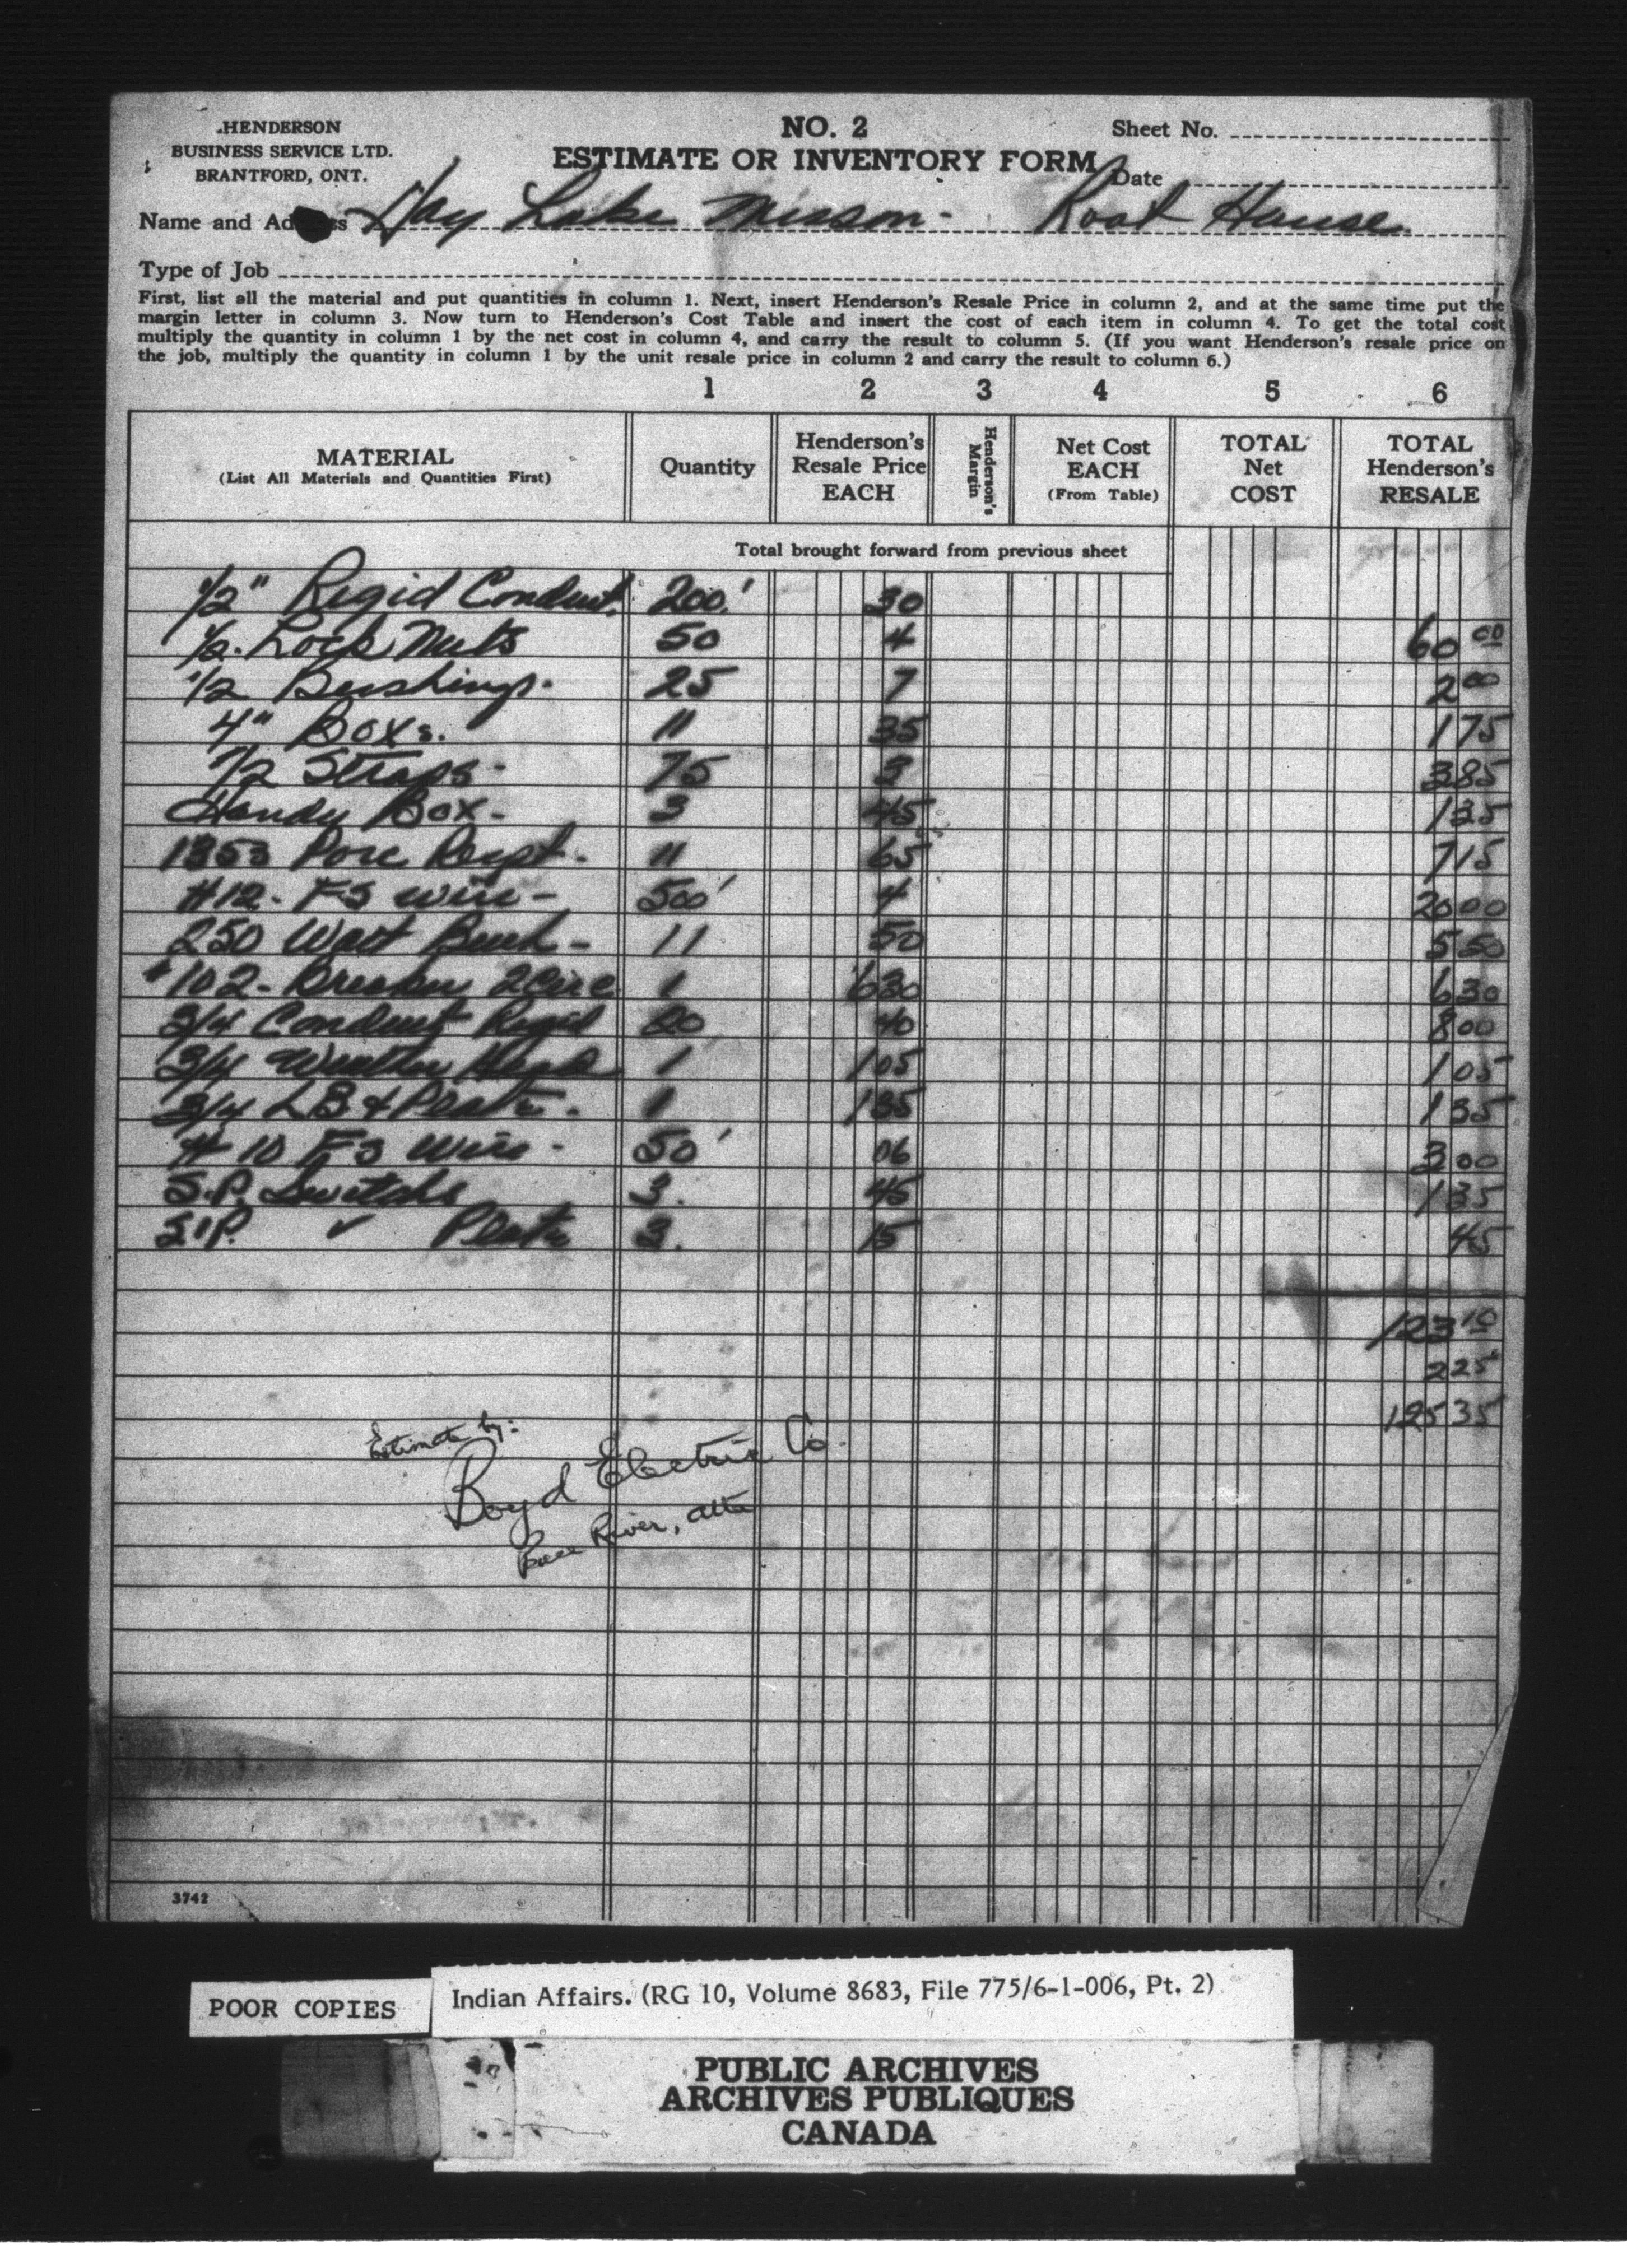 HENDERSON
BUSINESS SERVICE LTD.
BRANTFORD, ONT.
NO. 2
ESTIMATE OR INVENTORY FORM
Sheet No.
Date
Name and Ad ss Hay Lake Mission - Root House
Type of Job
First, list all the material and put quantities in column 1. Next, insert Henderson's Resale Price in column 2, and at the same time put the
margin letter in column 3. Now turn to Henderson's Cost Table and insert the cost of each item in column 4. To get the total cost
multiply the quantity in column 1 by the net cost in column 4, and carry the result to column 5. (If you want Henderson's resale price on
the job, multiply the quantity in column 1 by the unit resale price in column 2 and carry the result to column 6.)
1 2 3 4 5 6
MATERIAL
(List All Materials and Quantities First)
Quantity
Henderson's
Resale Price
EACH
Henderson's
Margin
Net Cost
EACH
(From Table)
TOTAL
Net
COST
TOTAL
Henderson's
RESALE
Total brought forward from previous sheet
1/2" Rigid Conduit 200' 30
1/2 Lock Nuts 50 4 60 00
1/2 Bushings 25 7 2 00
4" Boxs. 11 35 1 75
1/2 Straps 75 3 85
Handy Box - 3 45 1 35
1353 Porc Recpt. 11 65 7 15
#12 - FS wire - 500' 4 20 00
250 Watt - 11 50 5 50
#102 - Breaker 2 Circ 1 6 30 6 30
3/4 Conduit Rigid 20 40 8 00
3/4 Weather Head 1 1 05 1 05
3/4 LB & Plate. 1 1 35 1 35
#10 FS Wire - 50' 06 3 00
S.P. Switchs 3. 45 1 35
S.P. ✓ Plate 3. 15 45
123 10
2 25
125 35
Estimate by:
Boyd Electric Co.
Peace River, Alta
3742
POOR COPIES
Indian Affairs. (RG 10, Volume 8683, File 775/6-1-006, Pt. 2)
PUBLIC ARCHIVES
ARCHIVES PUBLIQUES
CANADA